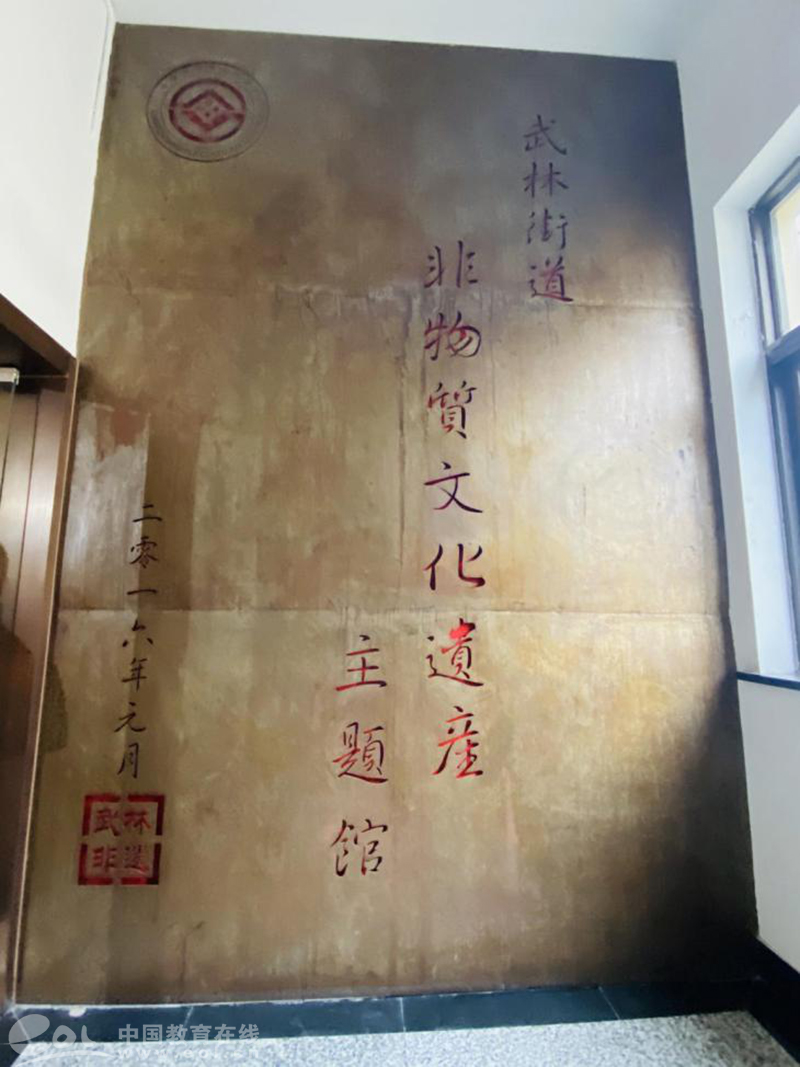 武林街道
非物質文化遺産
主題館
二零一六年元月
武林
非遺
中国教育在线